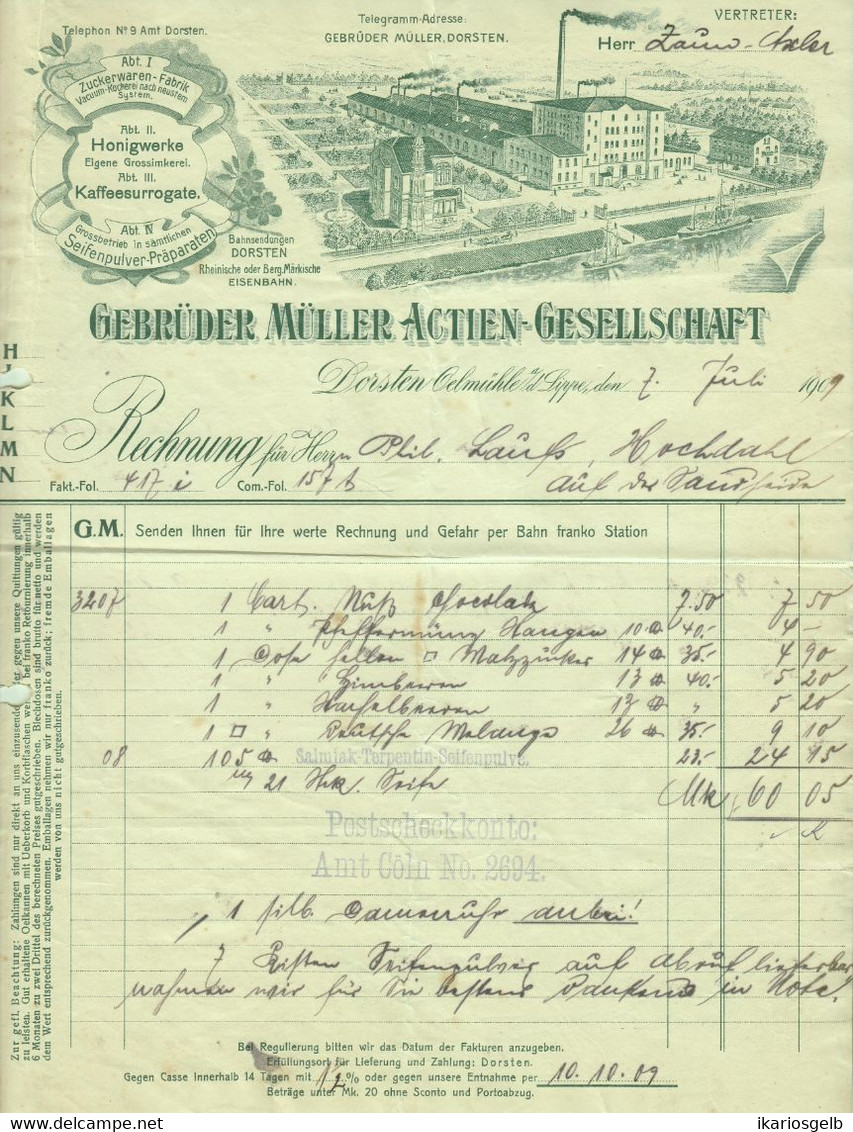 Telephon Nº 9 Amt Dorsten.
Telegramm-Adresse:
GEBRÜDER MÜLLER, DORSTEN.
VERTRETER:
Herr
Abt. I
Zuckerwaren-Fabrik
Vacuum-Kocherei nach neustem
System.
Abt. II.
Honigwerke
Eigene Grossimkerei.
Abt. III.
Kaffeesurrogate.
Abt. IV
Grossbetrieb in sämtlichen
Seifenpulver-Präparaten
Bahnsendungen
DORSTEN
Rheinische oder Berg. Märkische
EISENBAHN.
GEBRÜDER MÜLLER ACTIEN-GESELLSCHAFT
H
J
K
L
M
N
Dorsten Oelmühle a/d Lippe, den 7. Juli 1909
Rechnung für Herrn Phil. Laufs, Hochdahl
Fakt.-Fol. 417 i Com.-Fol. 157 b auf der Sandheide
G.M. Senden Ihnen für Ihre werte Rechnung und Gefahr per Bahn franko Station
3207 1 Cart. Nuß Chocolade 7.50 7 50
1 " Pfeffermünz Stangen 10 40.- 4 -
1 Dose 14 35.- 4 90
1 " Himbeeren 13 40.- 5 20
1 " 13 " 5 20
1 " Deutsche Melange 26 35.- 9 10
08 105 Salmiak-Terpentin-Seifenpulve. 23.- 24 15
21 Stck. Seife Mk 60 05
Postscheckkonto:
Amt Cöln No. 2694.
1 silb. Damenuhr anbei!
7 Kisten Seifenpulver auf Abruf lieferbar
nahmen wir für Sie bestens dankend in Note!
Zur gefl. Beachtung: Zahlungen sind nur direkt an uns einzusenden oder gegen unsere Quittungen gültig
zu leisten. Gut erhaltene Oelkannen mit Ueberkorb und Korbflaschen werden bei franko Retournierung innerhalb
6 Monaten zu zwei Drittel des berechneten Preises gutgeschrieben. Blechdosen sind brutto für netto und werden
dem Wert entsprechend zurückgenommen. Emballagen nehmen wir nur franko zurück; fremde Emballagen
werden von uns nicht gutgeschrieben.
Bei Regulierung bitten wir das Datum der Fakturen anzugeben.
Erfüllungsort für Lieferung und Zahlung: Dorsten.
Gegen Casse innerhalb 14 Tagen mit % oder gegen unsere Entnahme per 10. 10. 09
Beträge unter Mk. 20 ohne Sconto und Portoabzug.
ikariosgelb